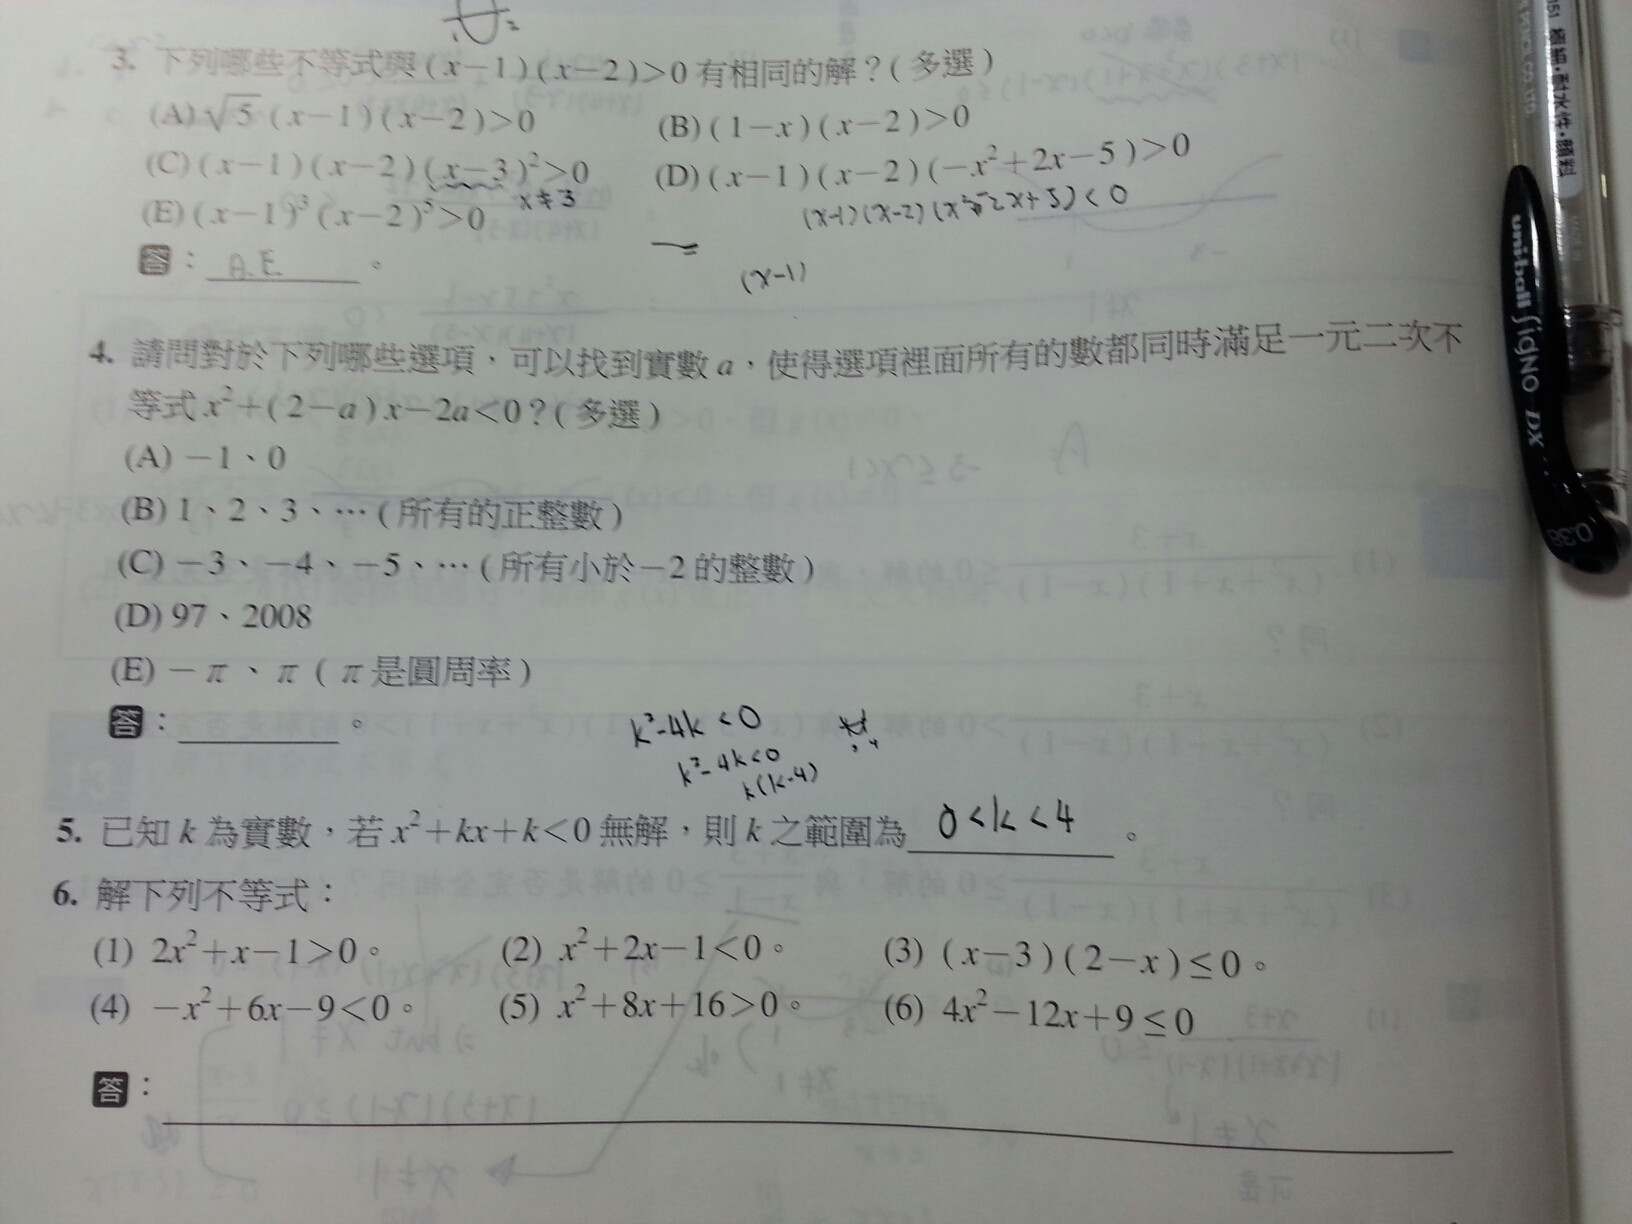 3. 下列哪些不等式與(x−1)(x−2)>0有相同的解？(多選)
(A)√5(x−1)(x−2)>0 (B)(1−x)(x−2)>0
(C)(x−1)(x−2)(x−3)²>0 (D)(x−1)(x−2)(−x²+2x−5)>0
x≠3
(E)(x−1)³(x−2)⁵>0
答：A.E. 。
(x-1)
4. 請問對於下列哪些選項，可以找到實數a，使得選項裡面所有的數都同時滿足一元二次不
等式x²+(2−a)x−2a<0？(多選)
(A)−1、0
(B)1、2、3、…(所有的正整數)
(C)−3、−4、−5、…(所有小於−2的整數)
(D)97、2008
(E)−π、π(π是圓周率)
答：。
k²-4k<0
k²-4k<0
k(k-4)
5. 已知k為實數，若x²+kx+k<0無解，則k之範圍為 0<k<4 。
6. 解下列不等式：
(1) 2x²+x−1>0。 (2) x²+2x−1<0。 (3) (x−3)(2−x)≤0。
(4) −x²+6x−9<0。 (5) x²+8x+16>0。 (6) 4x²−12x+9≤0
答：
uni-ball SigNO DX
0.38